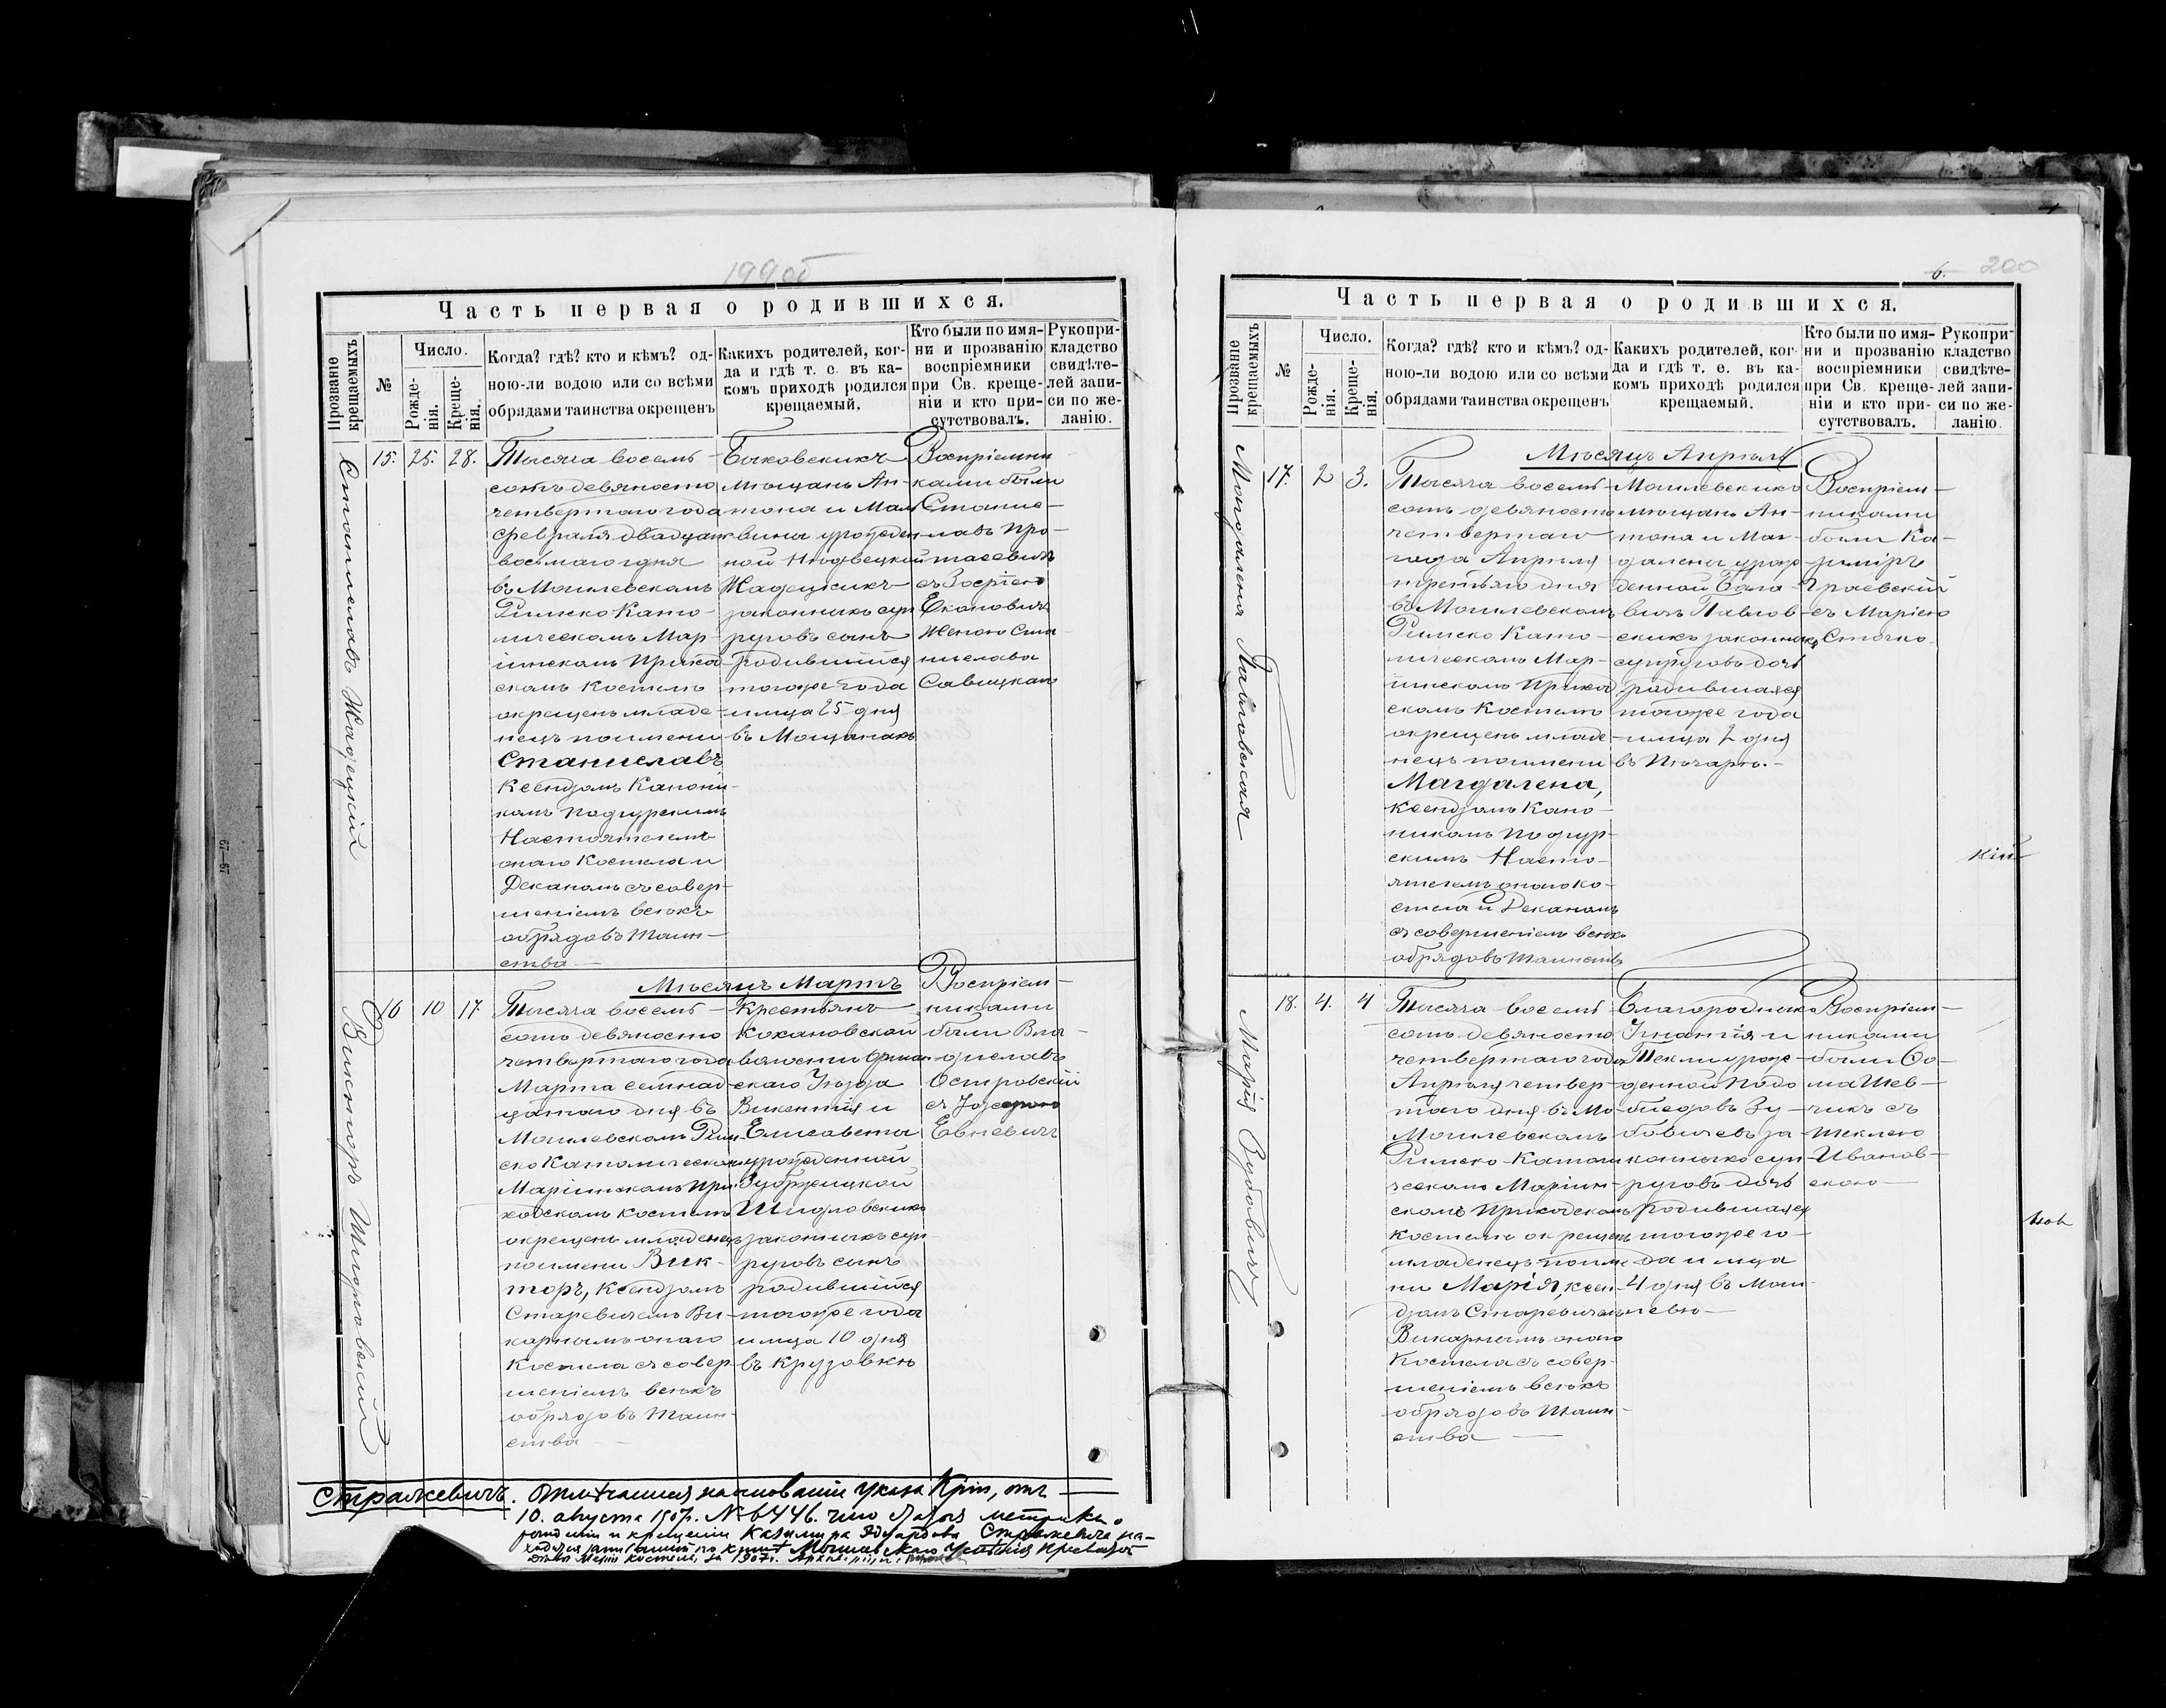 199 об
Часть первая о родившихся.
Прозваніе крещаемыхъ
№
Число.
Рожде-
нія.
Креще-
нія.
Когда? гдѣ? кто и кѣмъ? од-
ною-ли водою или со всѣми
обрядами таинства окрещенъ
Какихъ родителей, ког-
да и гдѣ т. е. въ ка-
комъ приходѣ родился
крещаемый.
Кто были по имя-
ни и прозванію
воспріемники
при Св. креще-
ніи и кто при-
сутствовалъ.
Рукопри-
кладство
свидѣте-
лей запи-
си по же-
ланію.
Станиславъ Жадецкій
15. 25. 28.
Тысяча восемь-
сотъ девяносто
четвертаго года
Февраля двадцать
восьмаго дня
въ Могилевскомъ
Римско Като-
лическомъ Мар-
іинскомъ Приход-
скомъ Костелѣ
окрещенъ младе-
нецъ по имени
Станиславъ
Ксендзомъ Канони-
комъ Подгурскимъ
Настоятелемъ
онаго Костела и
Деканомъ съ совер-
шеніемъ всѣхъ
обрядовъ Таин-
ства
Быховскихъ
Мѣщанъ Ан-
тона и Маль-
вины урожден-
ной
Жадецкихъ
законныхъ суп-
руговъ сынъ
родившійся
тогоже года
и мца 25 дня
въ Мощанахъ
Воспріемни
ками были
Станис-
лавъ Про-
тасевичъ
съ Зосфіею
женою Ста
нислава
Савицкаго
Мѣсяцъ Мартъ
Викторъ Шидловскій
16 10 17.
Тысяча восемь-
сотъ девяносто
четвертаго года
Марта семнад-
цатаго дня въ
Могилевскомъ Рим-
ско Католическомъ
Маріинскомъ При-
ходскомъ Костелѣ
окрещенъ младенецъ
по имени Вик-
торъ, Ксендзомъ
Старевичемъ Ви-
карнымъ онаго
Костела съ совер-
шеніемъ всѣхъ
обрядовъ Таин-
ства
Крестьянъ
Кохановской
волости Оршан-
скаго Уѣзда
Викентія и
Елисаветы
урожденной
Шидловскихъ
законныхъ суп-
руговъ сынъ
родившійся
тогоже года
и мца 10 дня
въ Крузовкѣ
Воспріем-
никами
были Вла-
диславъ
Островскій
съ Юзефою
Евневичъ
Стражевичъ. Отмѣчанная на основаніи Указа Кріи, отъ
10. августа 1907г. № 6446. что
рожденіи и крещеніи Казимира Эдуардова Стражевича на-
за 1907г.
6. 200
Часть первая о родившихся.
Прозваніе крещаемыхъ
№
Число.
Рожде-
нія.
Креще-
нія.
Когда? гдѣ? кто и кѣмъ? од-
ною-ли водою или со всѣми
обрядами таинства окрещенъ
Какихъ родителей, ког-
да и гдѣ т. е. въ ка-
комъ приходѣ родился
крещаемый.
Кто были по имя-
ни и прозванію
воспріемники
при Св. креще-
ніи и кто при-
сутствовалъ.
Рукопри-
кладство
свидѣте-
лей запи-
си по же-
ланію.
Мѣсяцъ Апрѣль
Магдалена Павловская
17. 2 3.
Тысяча восемь-
сотъ девяносто
четвертаго
года Апрѣля
третьяго дня
въ Могилевскомъ
Римско Като-
лическомъ Мар-
іинскомъ Приход
скомъ Костелѣ
окрещенъ младе-
нецъ по имени
Магдалена,
Ксендзомъ Кано-
никомъ Подгур-
скимъ Насто-
ятелемъ онаго Ко-
стела и Деканомъ
съ совершеніемъ всѣхъ
обрядовъ Таинства
Могилевскихъ
мѣщанъ Ан-
тона и Маг-
далены урож-
денной
Павлов-
скихъ законныхъ
супруговъ дочь
родившаяся
тогоже года
и мца 2 дня
Воспріем-
никами
были Ка-
зиміръ
Граевскій
съ Маріею
кій
Марія Зубовичъ
18. 4. 4
Тысяча восемь-
сотъ девяносто
четвертаго года
Апрѣля четвер-
таго дня въ Мо-
Могилевскомъ
Римско-Католи-
ческомъ Маріин-
скомъ Приходскомъ
Костелѣ окрещенъ
младенецъ по име-
ни Марія, ксен-
дзомъ Старевичемъ
Викарнымъ онаго
Костела съ совер-
шеніемъ всѣхъ
обрядовъ Таин-
ства
Благородныхъ
Игнатія и
Теклиурож-
денной Подо
бѣдовъ Зу-
бовичевъ за-
конныхъ суп-
руговъ дочь
родившаяся
тогоже го-
да и мца
4 дня въ Моги-
левѣ
Воспріем-
никами
были Ѳо-
ма Шев-
чикъ съ
Теклею
Иванов-
скою